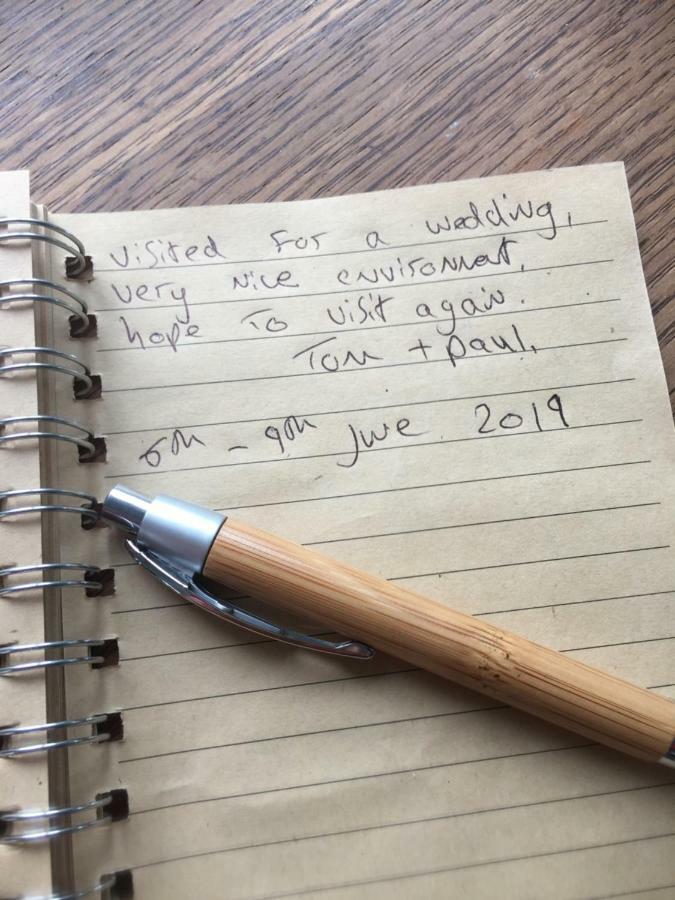 visited for a wedding,
very nice environment,
hope to visit again.
Tom + paul.
6th - 9th June 2019